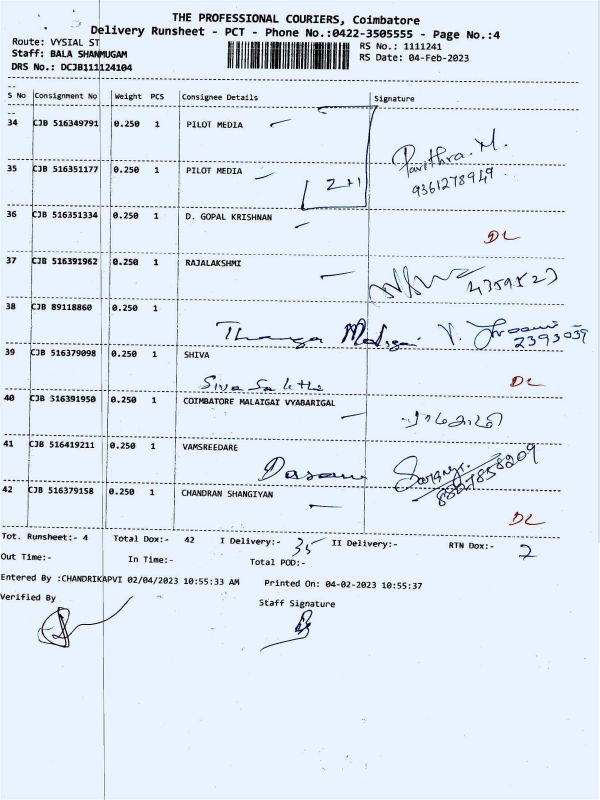 THE PROFESSIONAL COURIERS, Coimbatore
Delivery Runsheet - PCT - Phone No.:0422-3505555 - Page No.:4
Route: VYSIAL ST
RS No.: 1111241
Staff: BALA SHANMUGAM
RS Date: 04-Feb-2023
DRS No.: DCJB111124104
S No Consignment No Weight PCS Consignee Details Signature
34 CJB 516349791 0.250 1 PILOT MEDIA
Pavithra. M.
35 CJB 516351177 0.250 1 PILOT MEDIA
2+1
9361278949
36 CJB 516351334 0.250 1 D. GOPAL KRISHNAN
DL
37 CJB 516391962 0.250 1 RAJALAKSHMI
38 CJB 89118860 0.250 1
Thanga Maligai V.
39 CJB 516379098 0.250 1 SHIVA
Siva Sakthi
DL
40 CJB 516391950 0.250 1 COIMBATORE MALAIGAI VYABARIGAL
41 CJB 516419211 0.250 1 VAMSREEDARE
42 CJB 516379158 0.250 1 CHANDRAN SHANGIYAN
DL
Tot. Runsheet:- 4 Total Dox:- 42 I Delivery:- 35 II Delivery:- RTN Dox:- 7
Out Time:- In Time:- Total POD:-
Entered By :CHANDRIKAPVI 02/04/2023 10:55:33 AM Printed On: 04-02-2023 10:55:37
Verified By Staff Signature